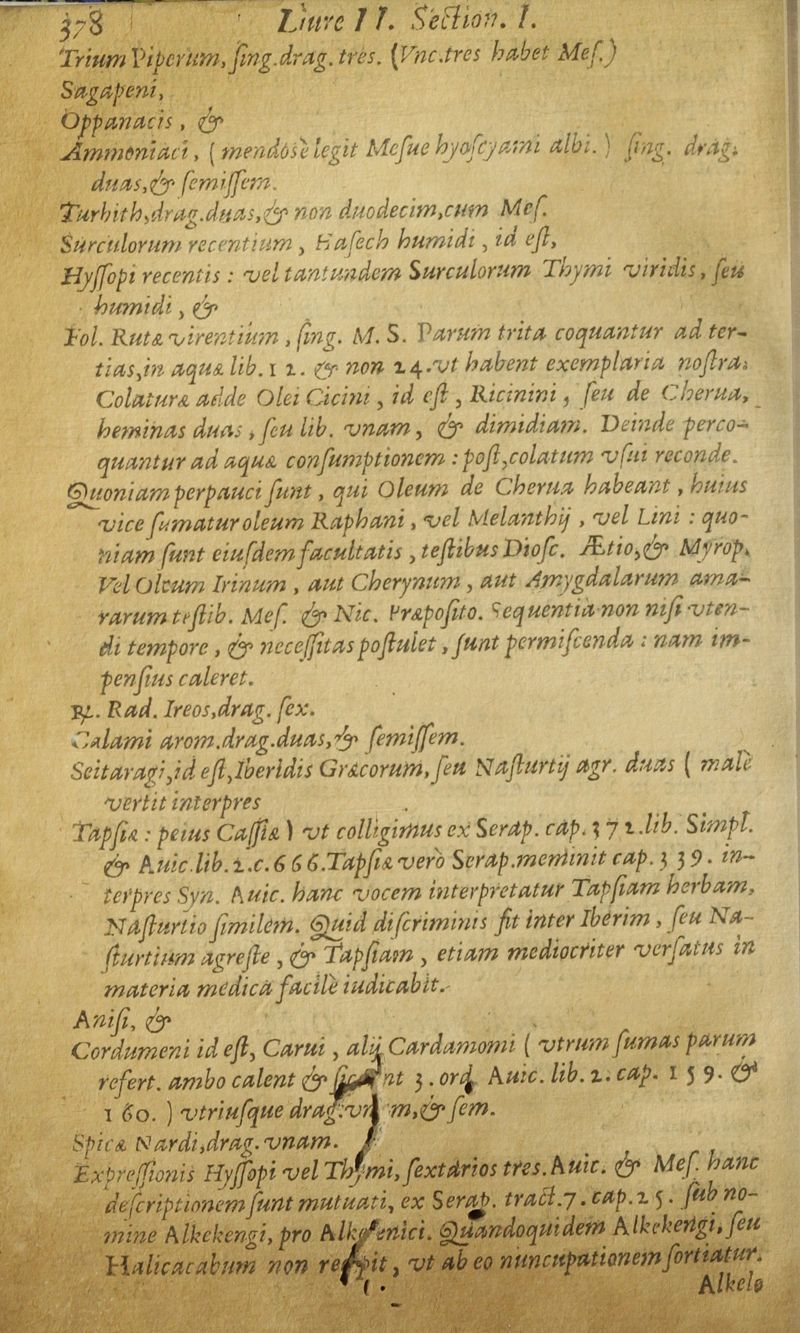 378 Liure II. Section. I.
Trium Piperum, sing. drag. tres. (Vnc. tres habet Mes.)
Sagapeni,
Oppanacis, &
Ammoniaci, (mendosè legit Mesue hyoscyami albi.) sing. drag.
duas, & semissem.
Turbith, drag. duas, & non duodecim, cum Mes.
Surculorum recentium, Hasech humidi, id est,
Hyssopi recentis: vel tantundem Surculorum Thymi viridis, seu
humidi, &
Fol. Rutæ virentium, sing. M. S. Parum trita coquantur ad ter-
tias, in aquæ lib. 12. & non 24. vt habent exemplaria nostra.
Colaturæ adde Olei Cicini, id est, Ricinini, seu de Cherua,
heminas duas, seu lib. vnam, & dimidiam. Deinde perco-
quantur ad aquæ consumptionem: post, colatum vsui reconde.
Quoniam perpauci sunt, qui Oleum de Cherua habeant, huius
vice sumatur oleum Raphani, vel Melanthij, vel Lini: quo-
niam sunt eiusdem facultatis, testibus Diosc. Ætio, & Myrop.
Vel Oleum Irinum, aut Cherynum, aut Amygdalarum ama-
rarum testib. Mes. & Nic. Præposito. Sequentia non nisi vten-
di tempore, & necessitas postulet, sunt permiscenda: nam im-
pensius caleret.
℞. Rad. Ireos, drag. sex.
Calami arom. drag. duas, & semissem.
Seitaragi, id est, Iberidis Græcorum, seu Nasturtij agr. duas (malè
vertit interpres
Tapsiæ: peius Cassiæ) vt colligimus ex Serap. cap. 371. lib. Simpl.
& Auic. lib. 2. c. 666. Tapsiæ verò Serap. meminit cap. 339. in-
terpres Syn. Auic. hanc vocem interpretatur Tapsiam herbam,
Nasturtio similem. Quid discriminis sit inter Iberim, seu Na-
sturtium agreste, & Tapsiam, etiam mediocriter versatus in
materia medica facilè iudicabit.
Anisi, &
Cordumeni id est, Carui, alij Cardamomi (vtrum sumas parum
refert. ambo calent & 3. ord. Auic. lib. 2. cap. 159. &
160.) vtriusque drag. vnam, & sem.
Spicæ Nardi, drag. vnam.
Expressionis Hyssopi vel Thymi, sextarios tres. Auic. & Mes. hanc
descriptionem sunt mutuati, ex Serap. tract. 7. cap. 25. sub no-
mine Alkekengi, pro Alkesenici. Quandoquidem Alkekengi, seu
Halicacabum non recipit, vt ab eo nuncupationem sortiatur.
Alkeke